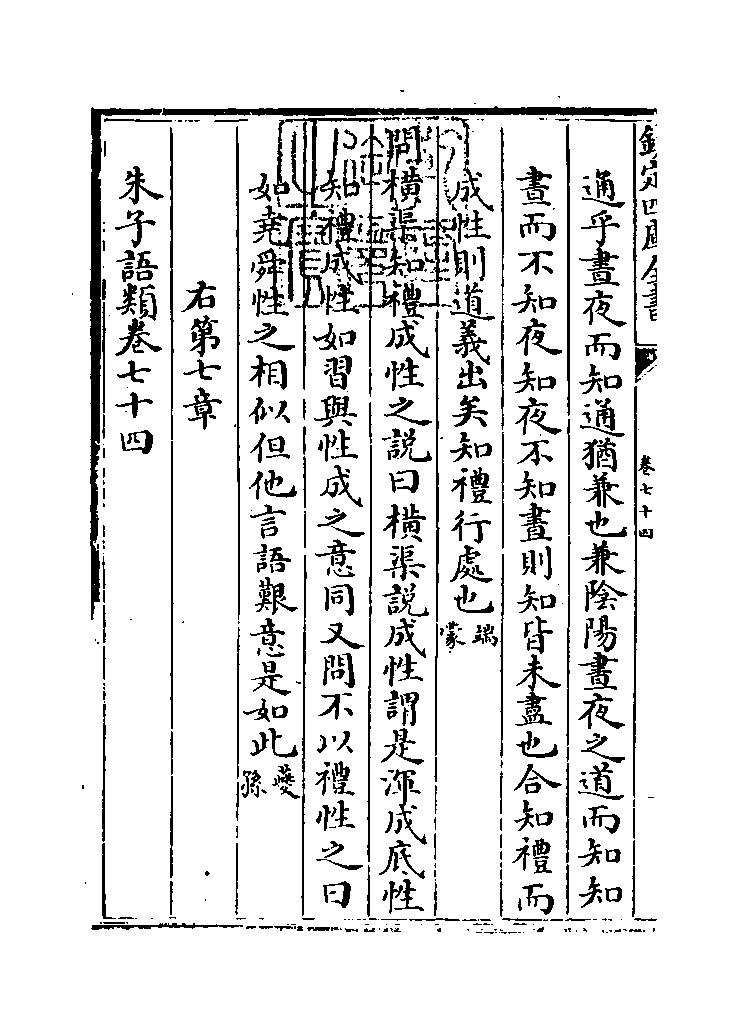 欽定四庫全書
卷七十四
通乎晝夜而知通猶兼也兼陰陽晝夜之道而知知
晝而不知夜知夜不知晝則知皆未盡也合知禮而
成性則道義出矣知禮行處也端蒙
問橫渠知禮成性之說曰橫渠說成性謂是渾成底性
知禮成性如習與性成之意同又問不以禮性之曰
如堯舜性之相似但他言語艱意是如此㬊孫
右第七章
朱子語類卷七十四